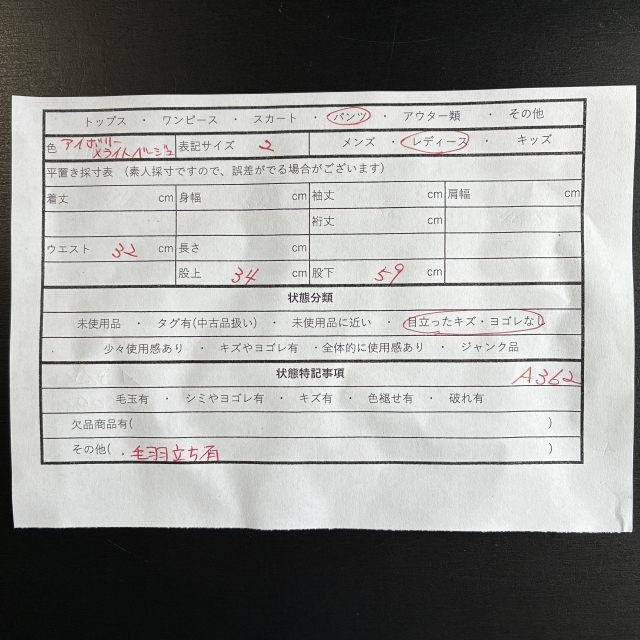 トップス ・ ワンピース ・ スカート ・ パンツ ・ アウター類 ・ その他
色 アイボリー×ライトベージュ 表記サイズ 2 メンズ ・ レディース ・ キッズ
平置き採寸表 (素人採寸ですので、誤差がでる場合がございます)
着丈 cm 身幅 cm 袖丈 cm 肩幅 cm
裄丈 cm
ウエスト 32 cm 長さ cm
股上 34 cm 股下 59 cm
状態分類
未使用品 ・ タグ有(中古品扱い) ・ 未使用品に近い ・ 目立ったキズ・ヨゴレなし
少々使用感あり ・ キズやヨゴレ有 ・全体的に使用感あり ・ ジャンク品
状態特記事項 A362
毛玉有 ・ シミやヨゴレ有 ・ キズ有 ・ 色褪せ有 ・ 破れ有
欠品商品有( )
その他( ・毛羽立ち有 )